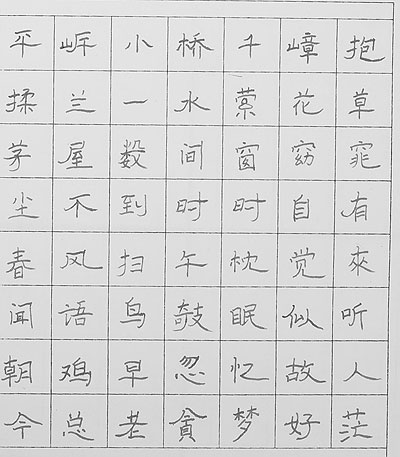 平岸小桥千嶂抱
揉兰一水萦花草
茅屋数间窗窈窕
尘不到时时自有
春风扫午枕觉來
闻语鸟敧眠似听
朝鸡早忽忆故人
今总老貪梦好茫